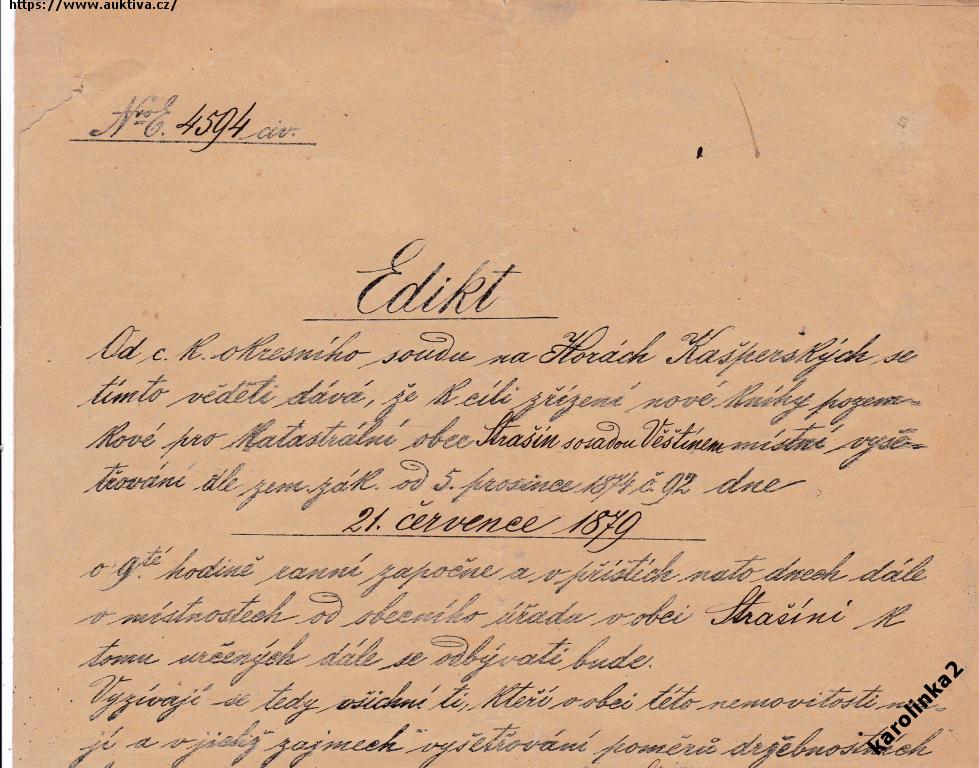 https://www.auktiva.cz/
Nro E. 4594 civ.
Edikt
Od c. k. okresního soudu na Horách Kašperských se
tímto věděti dává, že k cíli zřízení nové knihy pozem-
kové pro katastrální obec Strašín s osadou Věštínem místní vyše-
třování dle zem. zák. od 5. prosince 1874 č. 92 dne
21. července 1879
o 9té hodině ranní započne a v příštích nato dnech dále
v místnostech od obecního úřadu v obci Strašíni k
tomu určených dále se odbývati bude.
Vyzívají se tedy všichni ti, kteří v obci této nemovitosti ma-
jí a v jichž zajmech vyšetřování poměrů držebnostních
karolinka2